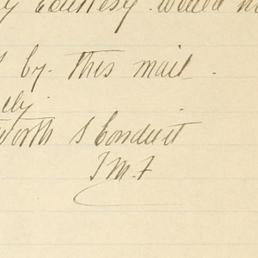 y Courtesy. would
by. this mail.
ely
worth S Conduit
T M. F